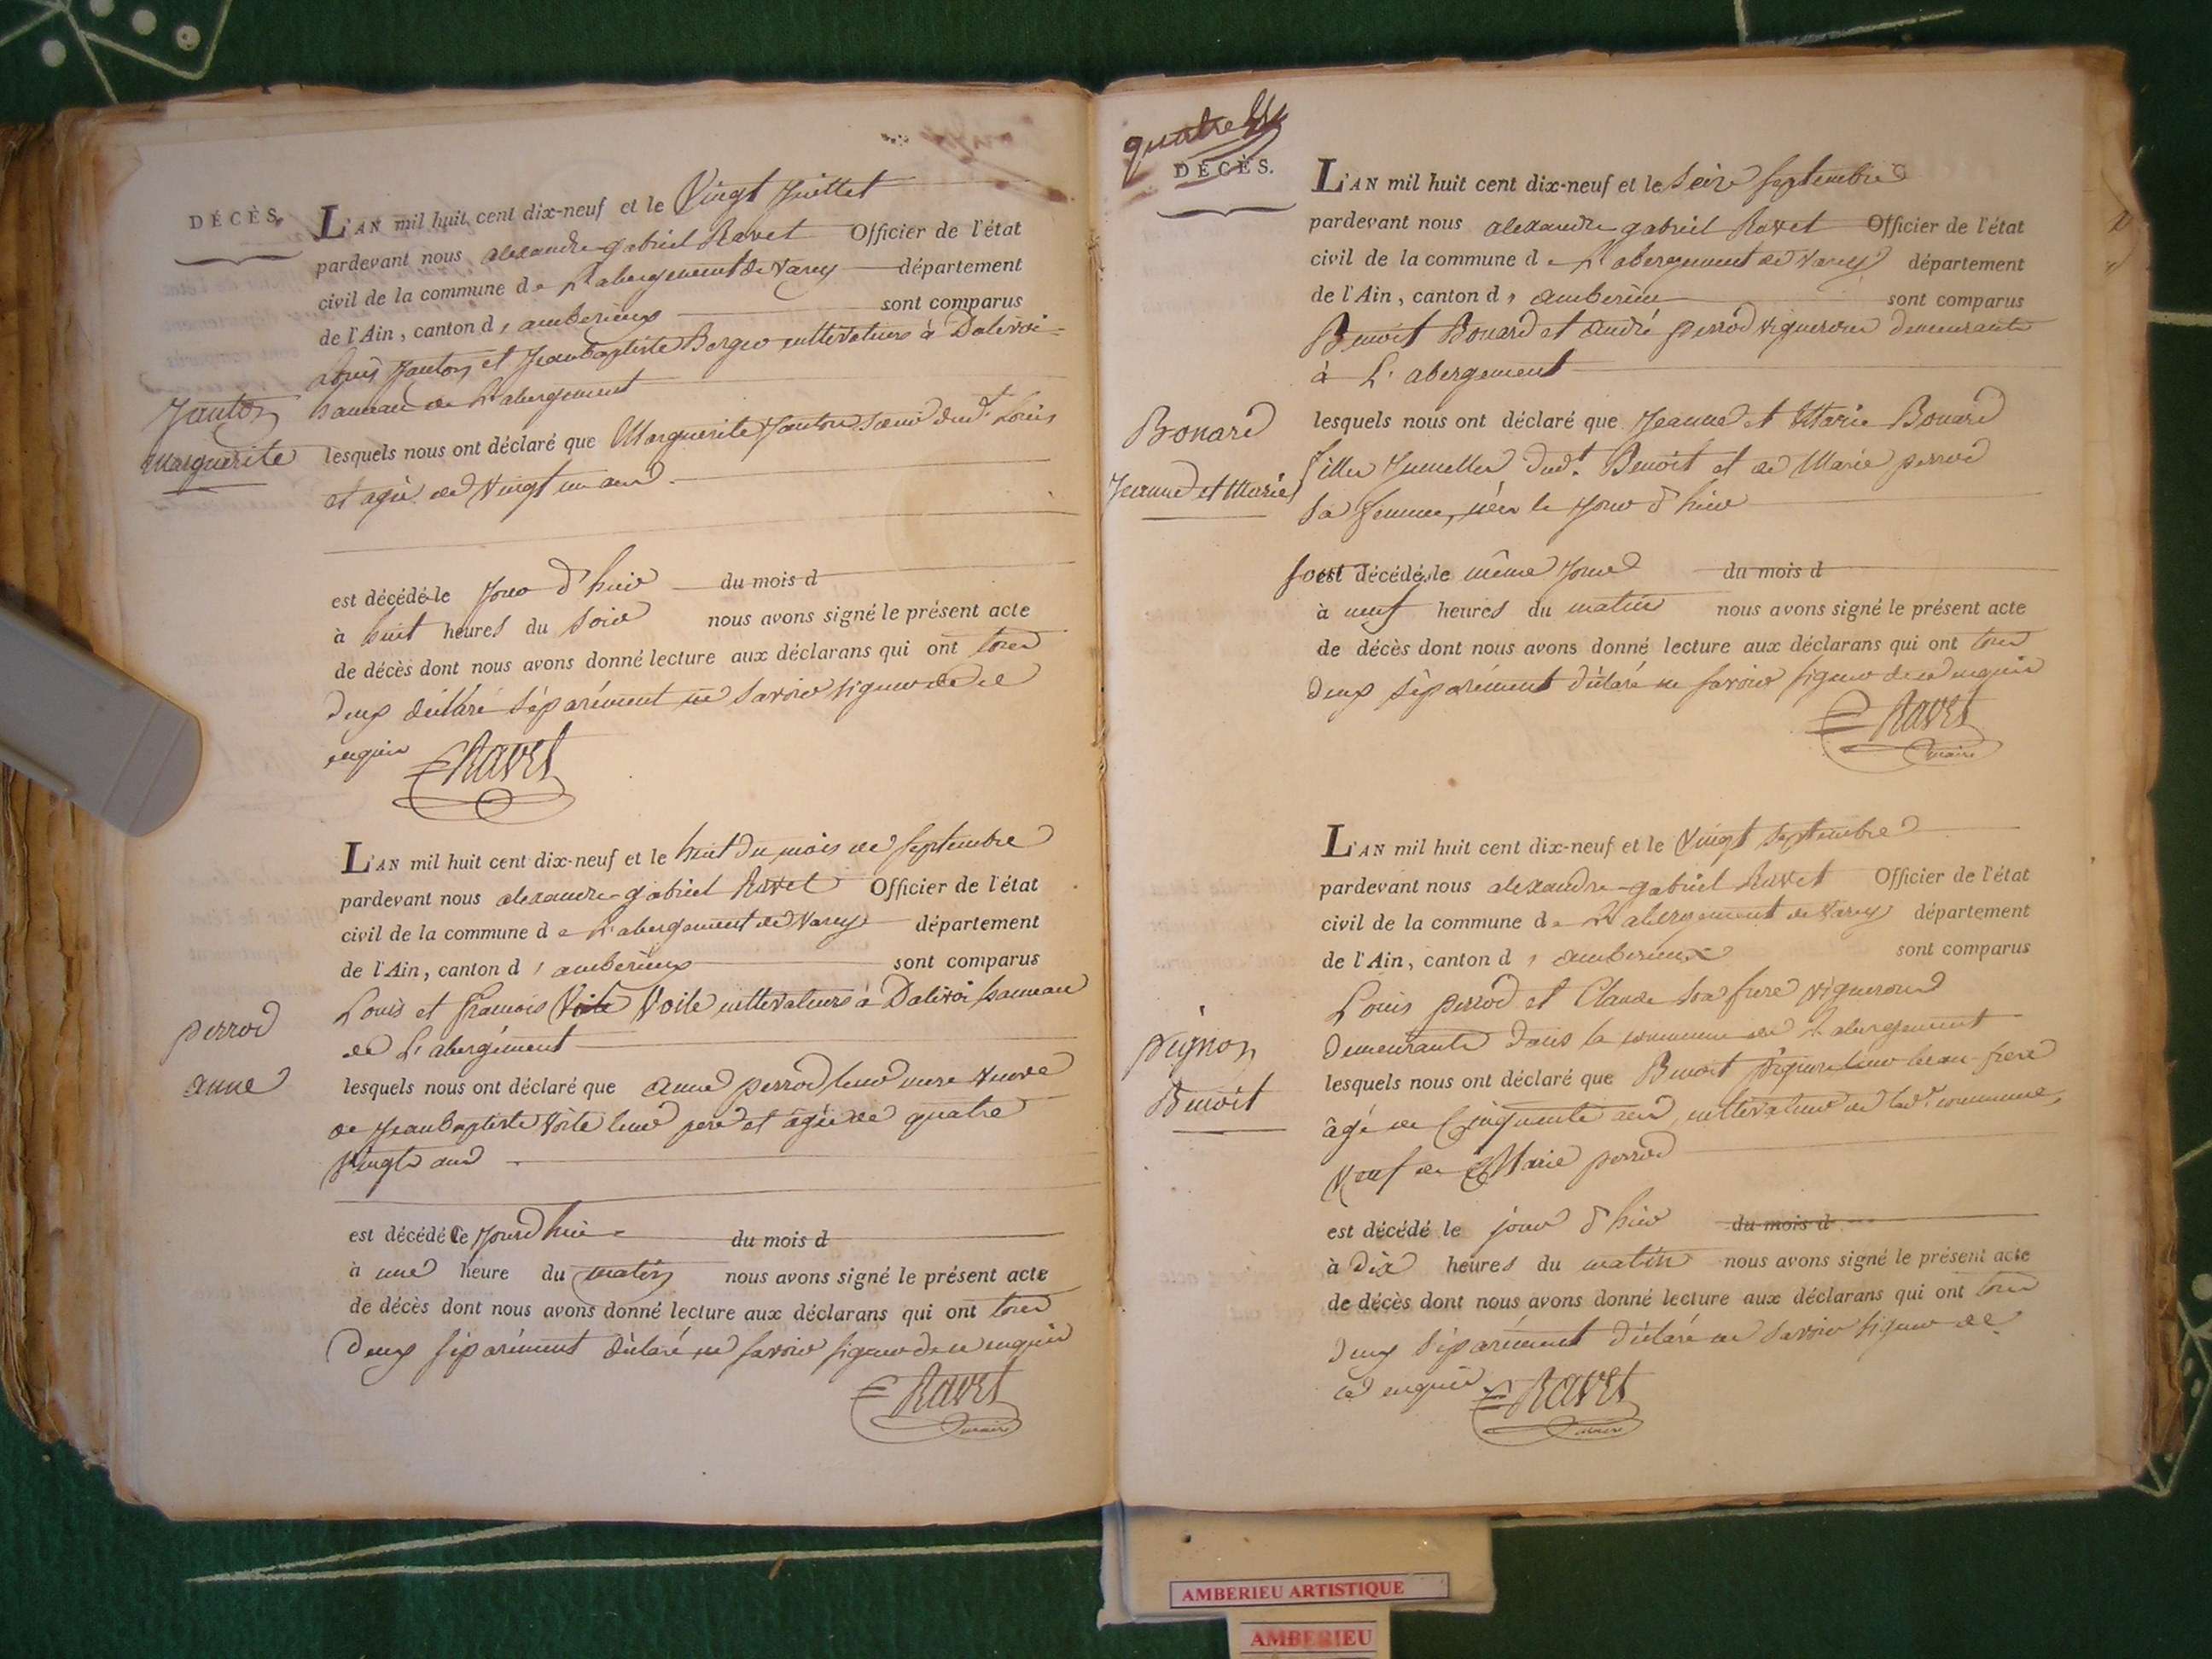 DÉCÈS.
L'AN mil huit cent dix-neuf et le Vingt Juillet
pardevant nous alexandre gabriel Ravet Officier de l'état
civil de la commune de L'abergement de Varey département
de l'Ain, canton d, amberieux sont comparus
Louis Janton et Jean baptiste Berger cultivateurs à Dalivoi
hameau de L'abergement
Janton
Marguerite
lesquels nous ont déclaré que Marguerite Janton sœur dudt Louis
et agée de Vingt un ans
est décédé le jour d'hier du mois d
à huit heures du soir nous avons signé le présent acte
de décès dont nous avons donné lecture aux déclarans qui ont tous
deux déclaré séparément ne savoir signer de ce
enquis Ravet
L'AN mil huit cent dix-neuf et le huit du mois de septembre
pardevant nous alexandre gabriel Ravet Officier de l'état
civil de la commune de L'abergement de Varey département
de l'Ain, canton d, amberieux sont comparus
Louis et francois Voile cultivateurs à Dalivoi hameau
de L'abergement
perrod
anne
lesquels nous ont déclaré que anne perrod leur mere veuve
de Jean baptiste Voile leur pere et agée de quatre
Vingts ans
est décédé le jour d'hier du mois d
à une heure du matin nous avons signé le présent acte
de décès dont nous avons donné lecture aux déclarans qui ont tous
deux séparément déclaré ne savoir signer de ce enquis
Ravet
maire
quatre
DÉCÈS.
L'AN mil huit cent dix-neuf et le seize septembre
pardevant nous alexandre gabriel Ravet Officier de l'état
civil de la commune de L'abergement de Varey département
de l'Ain, canton d, amberieux sont comparus
Benoit Bonard et andré perrod vignerons demeurants
à L'abergement
Bonard
Jeanne et Marie
lesquels nous ont déclaré que Jeanne et Marie Bonard
filles Jumelles dudt Benoit et de Marie perrod
sa femme, nées le jour d'hier
sont décédés le même jour du mois d
à neuf heures du matin nous avons signé le présent acte
de décès dont nous avons donné lecture aux déclarans qui ont tous
deux séparément déclaré ne savoir signer de ce enquis
Ravet
maire
L'AN mil huit cent dix-neuf et le Vingt septembre
pardevant nous alexandre gabriel Ravet Officier de l'état
civil de la commune de L'abergement de Varey département
de l'Ain, canton d, amberieux sont comparus
Louis perrod et Claude son frere vignerons
demeurants dans la commune de L'abergement
pignon
Benoit
lesquels nous ont déclaré que Benoit pignon leur beau frere
âgé de Cinquante ans, cultivateur de lad. commune,
Veuf de Marie perrod
est décédé le jour d'hier du mois d
à dix heures du matin nous avons signé le présent acte
de décès dont nous avons donné lecture aux déclarans qui ont tous
deux séparément déclaré ne savoir signer de
ce enquis Ravet
maire
AMBERIEU ARTISTIQUE
AMBERIEU